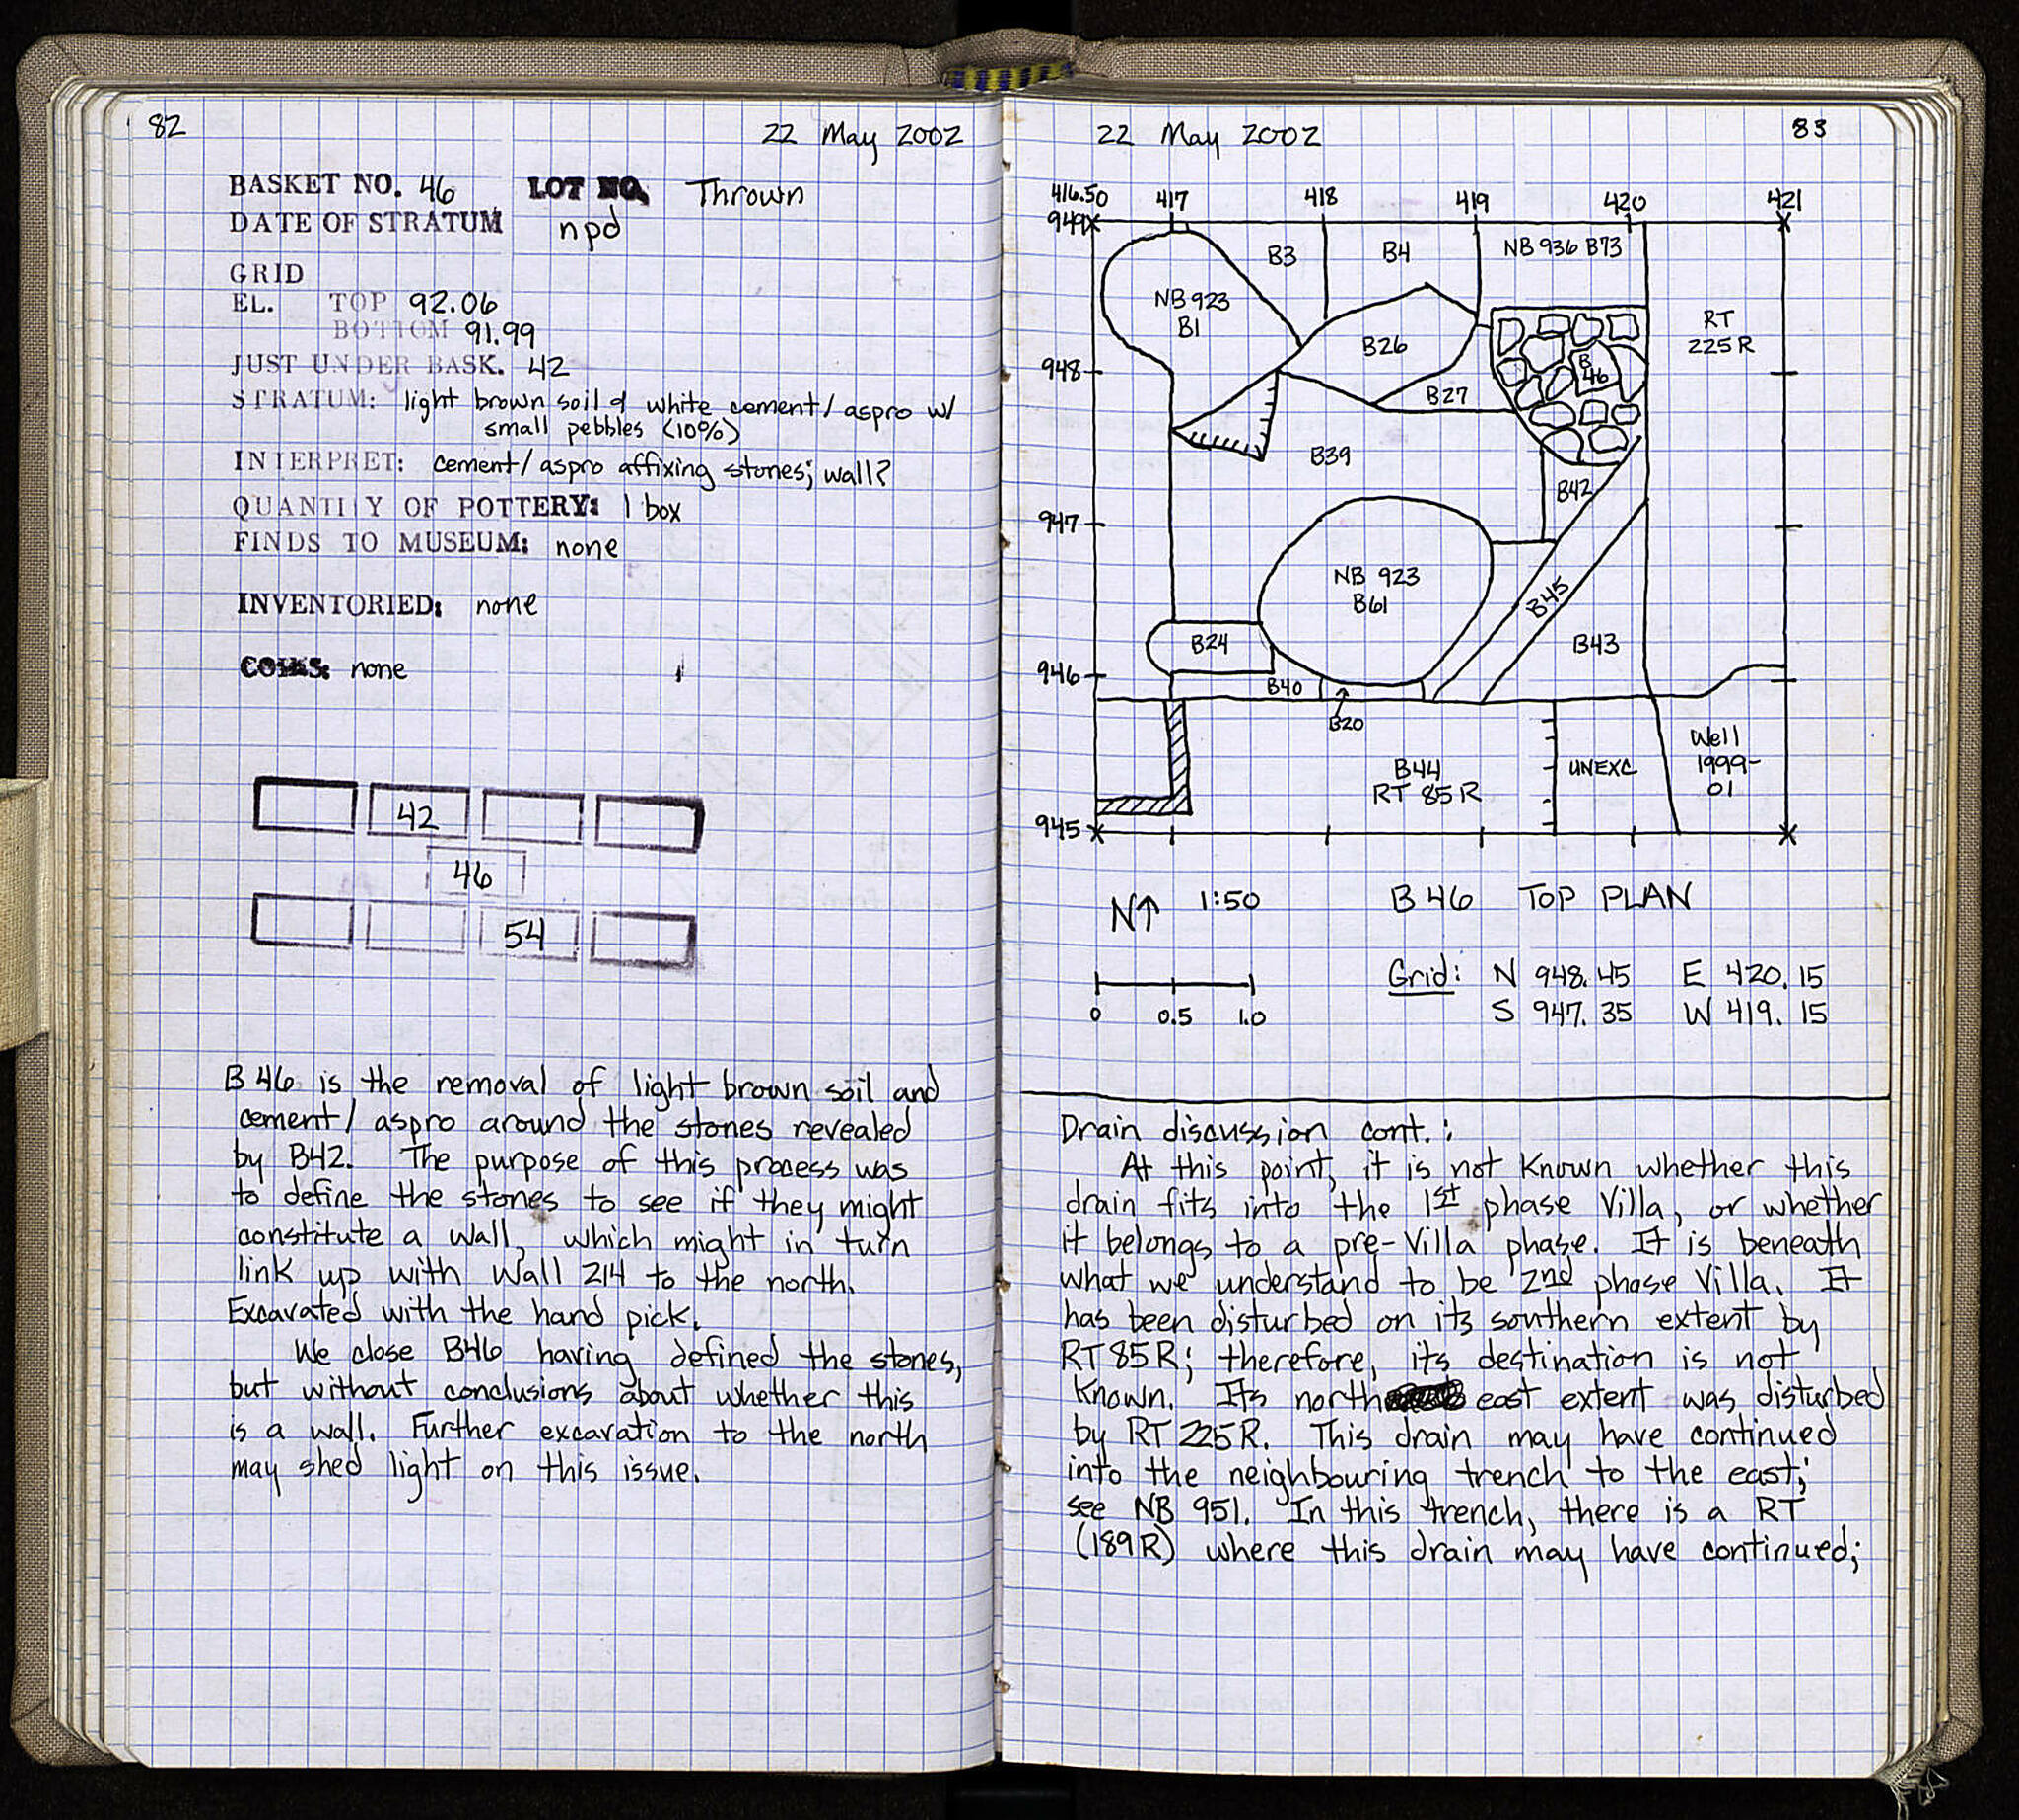 82
22 May 2002
BASKET NO. 46 LOT NO. Thrown
DATE OF STRATUM npd
GRID
EL. TOP 92.06
BOTTOM 91.99
JUST UNDER BASK. 42
STRATUM: light brown soil & white cement/aspro w/
small pebbles (10%)
INTERPRET: cement/aspro affixing stones; wall?
QUANTITY OF POTTERY: 1 box
FINDS TO MUSEUM: none
INVENTORIED: none
COINS: none
42
46
54
B 46 is the removal of light brown soil and
cement/aspro around the stones revealed
by B42. The purpose of this process was
to define the stones to see if they might
constitute a wall, which might in turn
link up with Wall 214 to the north.
Excavated with the hand pick.
We close B46 having defined the stones,
but without conclusions about whether this
is a wall. Further excavation to the north
may shed light on this issue.
22 May 2002
83
416.50 417 418 419 420 421
949
B3 B4 NB 936 B73
NB 923
B1
B26
B
46
RT
225 R
948
B27
B39
B42
947
NB 923
B61
B45
B24
B43
946
B40
B20
B44
RT 85 R
UNEXC
Well
1999-
01
945
N↑ 1:50 B 46 TOP PLAN
Grid: N 948.45 E 420.15
S 947.35 W 419.15
0 0.5 1.0
Drain discussion cont.:
At this point, it is not known whether this
drain fits into the 1st phase Villa, or whether
it belongs to a pre-Villa phase. It is beneath
what we understand to be 2nd phase Villa. It
has been disturbed on its southern extent by
RT 85 R; therefore, its destination is not
known. Its north east extent was disturbed
by RT 225 R. This drain may have continued
into the neighbouring trench to the east;
see NB 951. In this trench, there is a RT
(189 R) where this drain may have continued;